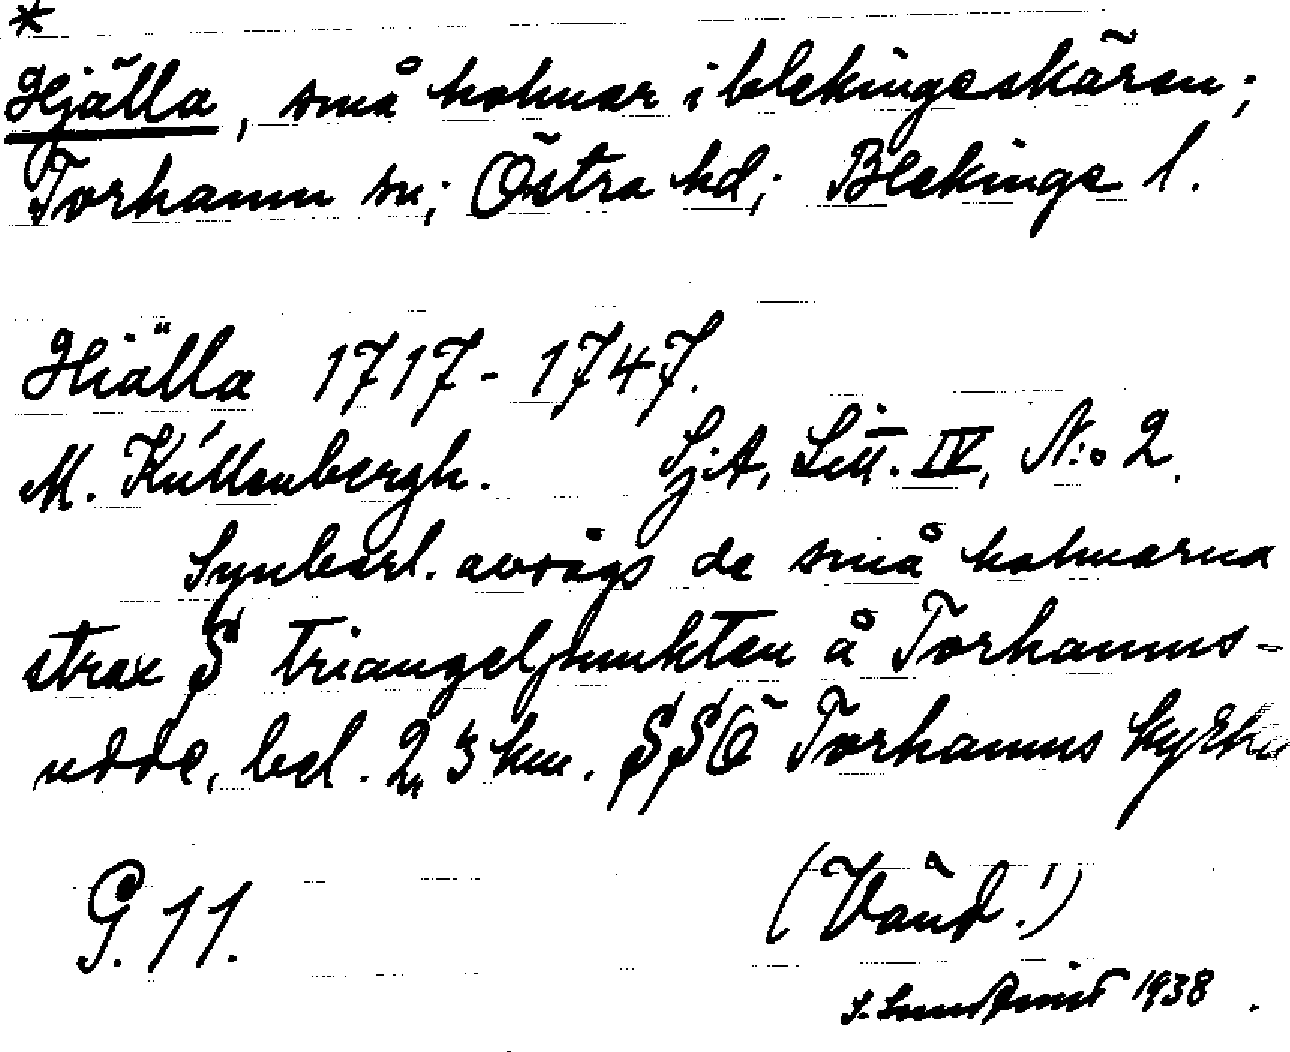 *
Hjälla, små holmar i blekingeskären;
Torhamn sn; Östra hd; Blekinge l.
Hiälla 1717-1747.
M. Kúllenbergh. SjA, Litt. IV, N:o 2.
Synbarl. avsågs de små holmarna
strax S triangelpunkten å Torhamns-
udde, bel. 2,3 km. SSÖ Torhamns kyrka
G. 11. (Vänd!)
S. 1938.